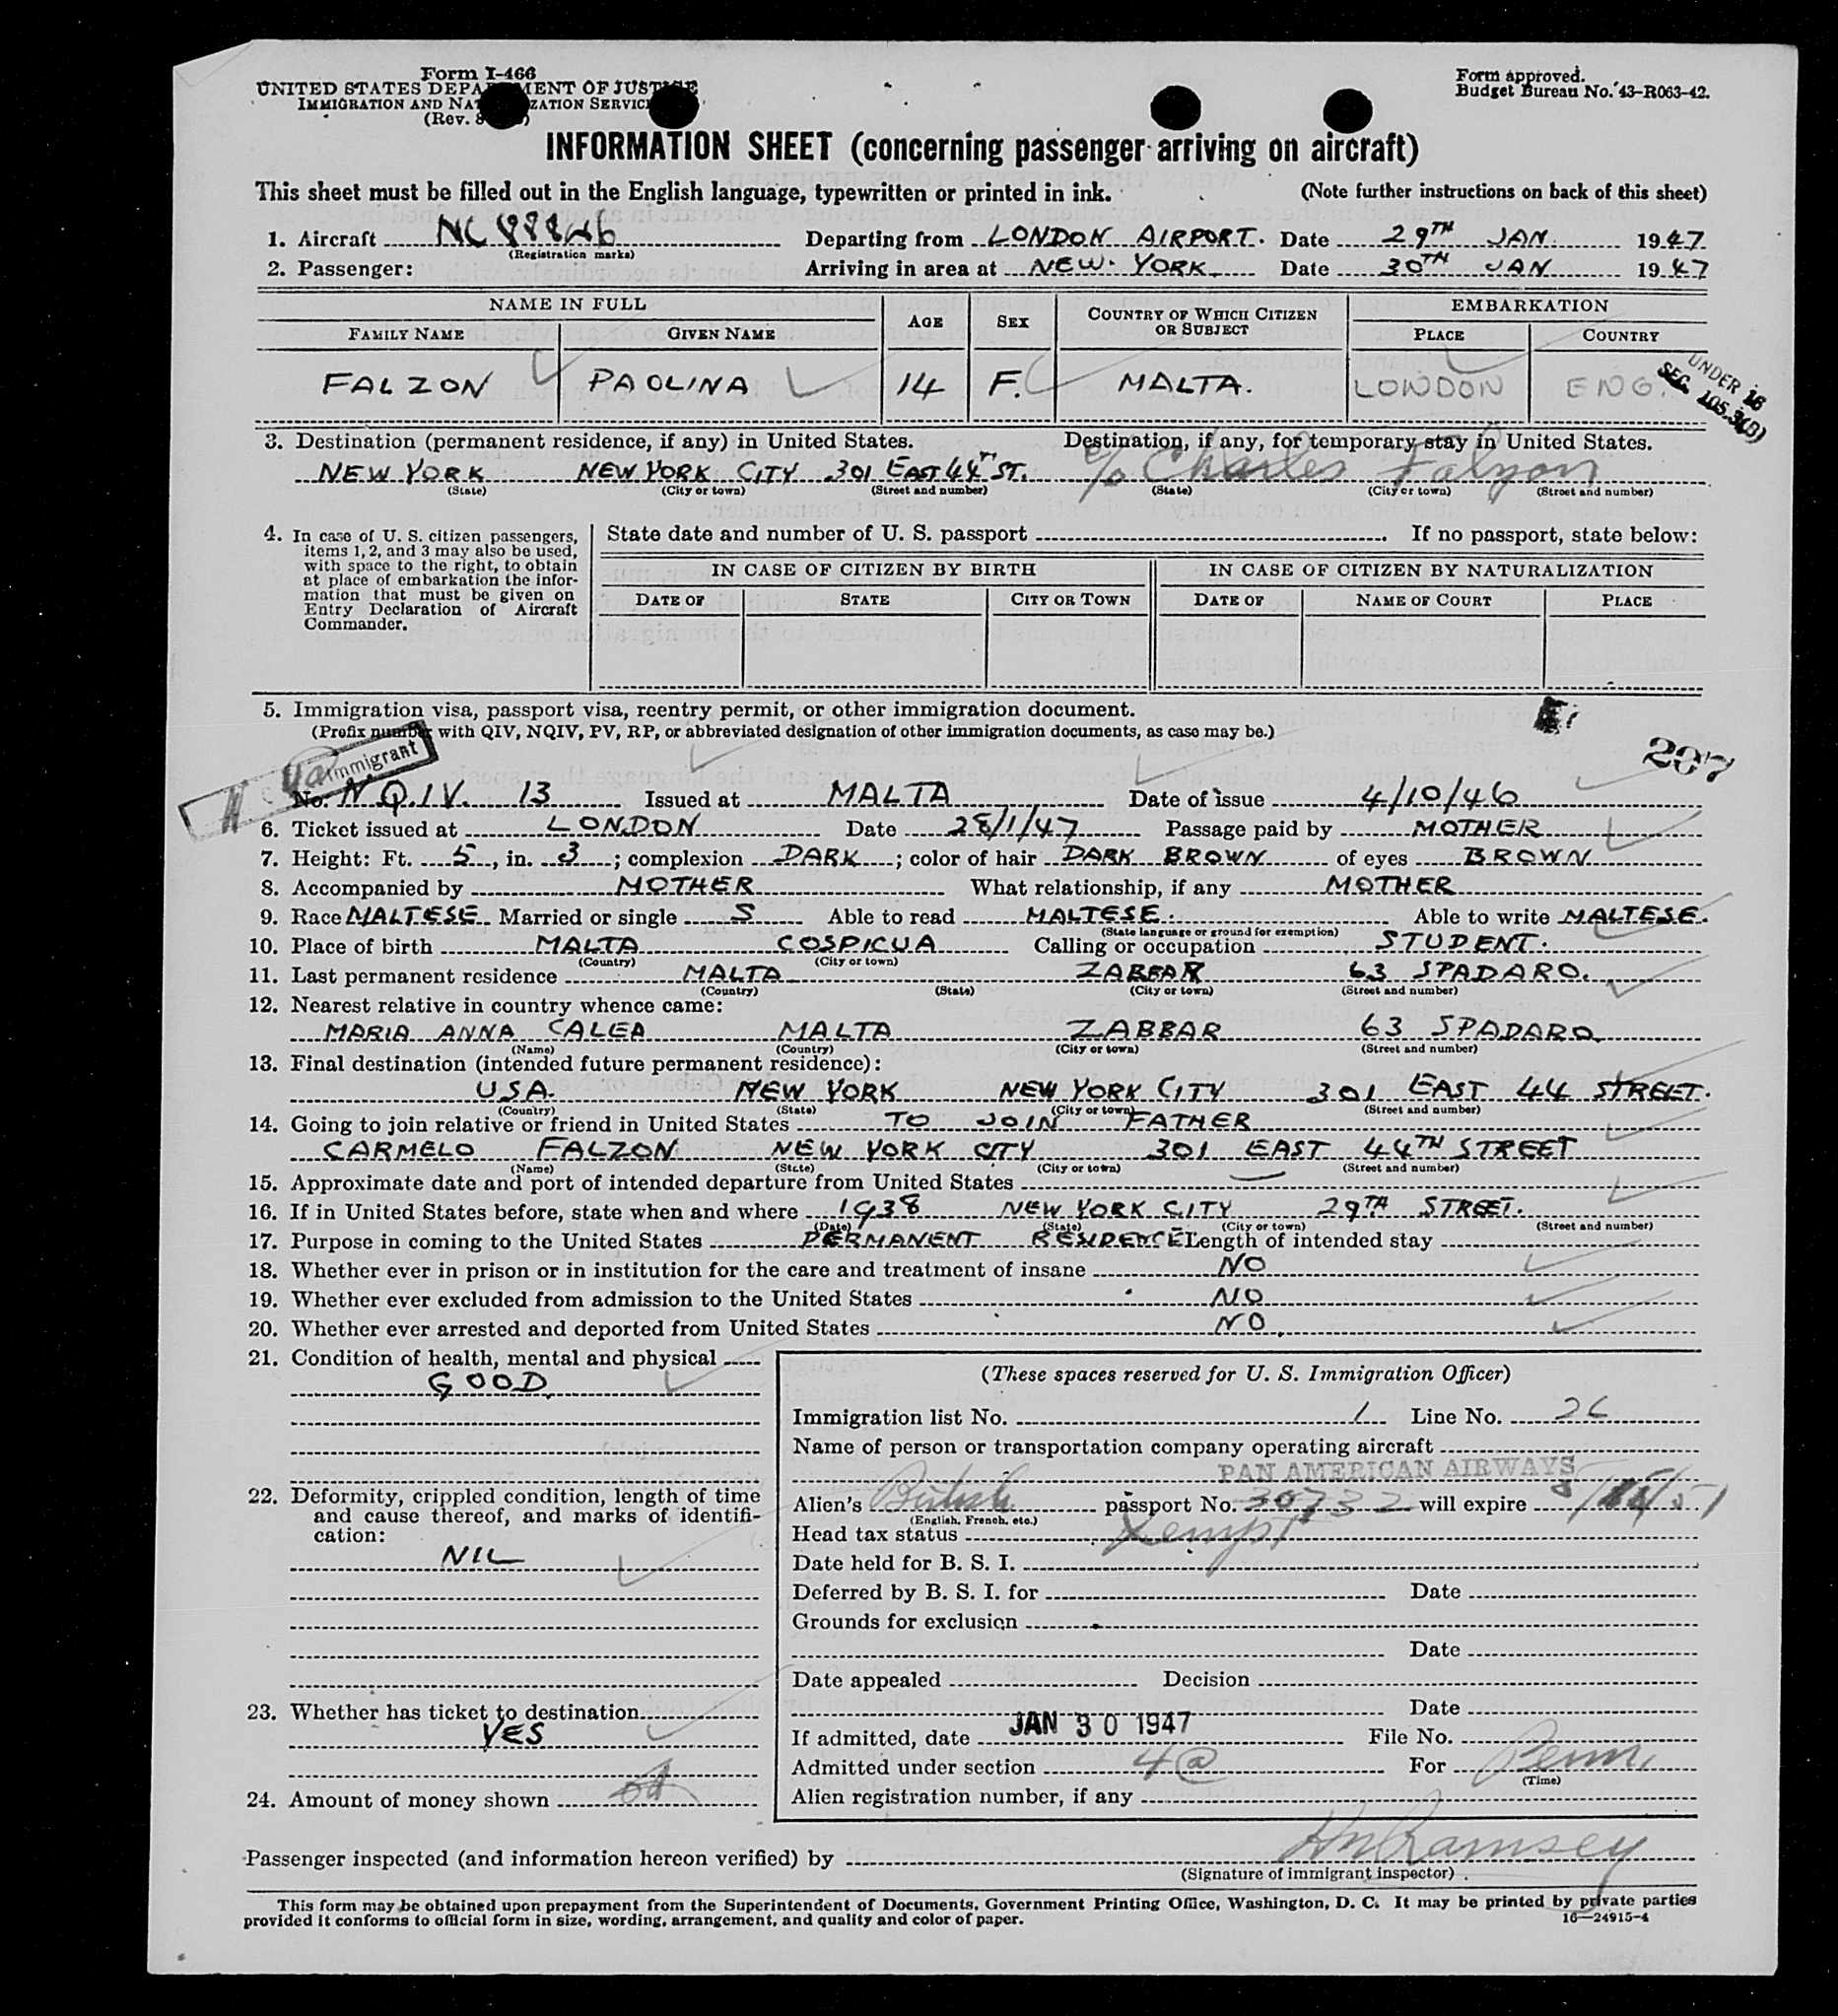 Form I-466
UNITED STATES DEPARTMENT OF JUSTICE
IMMIGRATION AND NATURALIZATION SERVICE
(Rev.
Form approved.
Budget Bureau No. 43-R063-42.
INFORMATION SHEET (concerning passenger arriving on aircraft)
This sheet must be filled out in the English language, typewritten or printed in ink. (Note further instructions on back of this sheet)
1. Aircraft Departing from LONDON AIRPORT. Date 29TH JAN. 1947
(Registration marks)
2. Passenger: Arriving in area at NEW YORK Date 30TH JAN 1947
NAME IN FULL AGE SEX COUNTRY OF WHICH CITIZEN OR SUBJECT EMBARKATION
FAMILY NAME GIVEN NAME PLACE COUNTRY
FALZON PAOLINA 14 F. MALTA. LONDON ENG.
UNDER 16
SEC. 105.3(b)
3. Destination (permanent residence, if any) in United States. Destination, if any, for temporary stay in United States.
NEW YORK NEW YORK CITY 301 EAST 44TH ST. c/o Charles Falzon
(State) (City or town) (Street and number) (State) (City or town) (Street and number)
4. In case of U. S. citizen passengers, items 1, 2, and 3 may also be used, with space to the right, to obtain at place of embarkation the information that must be given on Entry Declaration of Aircraft Commander.
State date and number of U. S. passport . If no passport, state below:
IN CASE OF CITIZEN BY BIRTH IN CASE OF CITIZEN BY NATURALIZATION
DATE OF STATE CITY OR TOWN DATE OF NAME OF COURT PLACE
5. Immigration visa, passport visa, reentry permit, or other immigration document.
(Prefix number with QIV, NQIV, PV, RP, or abbreviated designation of other immigration documents, as case may be.)
Immigrant
207
No. N.Q.IV. 13 Issued at MALTA Date of issue 4/10/46
6. Ticket issued at LONDON Date 28/1/47 Passage paid by MOTHER
7. Height: Ft. 5, in. 3; complexion DARK; color of hair DARK BROWN of eyes BROWN
8. Accompanied by MOTHER What relationship, if any MOTHER
9. Race MALTESE Married or single S Able to read MALTESE. Able to write MALTESE.
(State language or ground for exemption)
10. Place of birth MALTA COSPICUA Calling or occupation STUDENT.
(Country) (City or town)
11. Last permanent residence MALTA ZABBAR 63 SPADARO.
(Country) (State) (City or town) (Street and number)
12. Nearest relative in country whence came:
MARIA ANNA CALEA MALTA ZABBAR 63 SPADARO
(Name) (Country) (City or town) (Street and number)
13. Final destination (intended future permanent residence):
USA. NEW YORK NEW YORK CITY 301 EAST 44 STREET.
(Country) (State) (City or town) (Street and number)
14. Going to join relative or friend in United States TO JOIN FATHER
CARMELO FALZON NEW YORK CITY 301 EAST 44TH STREET
(Name) (State) (City or town) (Street and number)
15. Approximate date and port of intended departure from United States —
16. If in United States before, state when and where 1938 NEW YORK CITY 29TH STREET.
(Date) (State) (City or town) (Street and number)
17. Purpose in coming to the United States PERMANENT RESIDENCE Length of intended stay
18. Whether ever in prison or in institution for the care and treatment of insane NO
19. Whether ever excluded from admission to the United States NO
20. Whether ever arrested and deported from United States NO
21. Condition of health, mental and physical
GOOD
22. Deformity, crippled condition, length of time and cause thereof, and marks of identification:
NIL
23. Whether has ticket to destination
YES
24. Amount of money shown
(These spaces reserved for U. S. Immigration Officer)
Immigration list No. 1 Line No. 26
Name of person or transportation company operating aircraft
PAN AMERICAN AIRWAYS
Alien's British passport No. 30732 will expire
(English, French, etc.)
Head tax status Exempt
Date held for B. S. I.
Deferred by B. S. I. for Date
Grounds for exclusion
Date
Date appealed Decision
Date
If admitted, date JAN 30 1947 File No.
Admitted under section 4(a) For Perm.
(Time)
Alien registration number, if any
Passenger inspected (and information hereon verified) by Ramsey
(Signature of immigrant inspector)
This form may be obtained upon prepayment from the Superintendent of Documents, Government Printing Office, Washington, D. C. It may be printed by private parties
provided it conforms to official form in size, wording, arrangement, and quality and color of paper. 16—24915-4